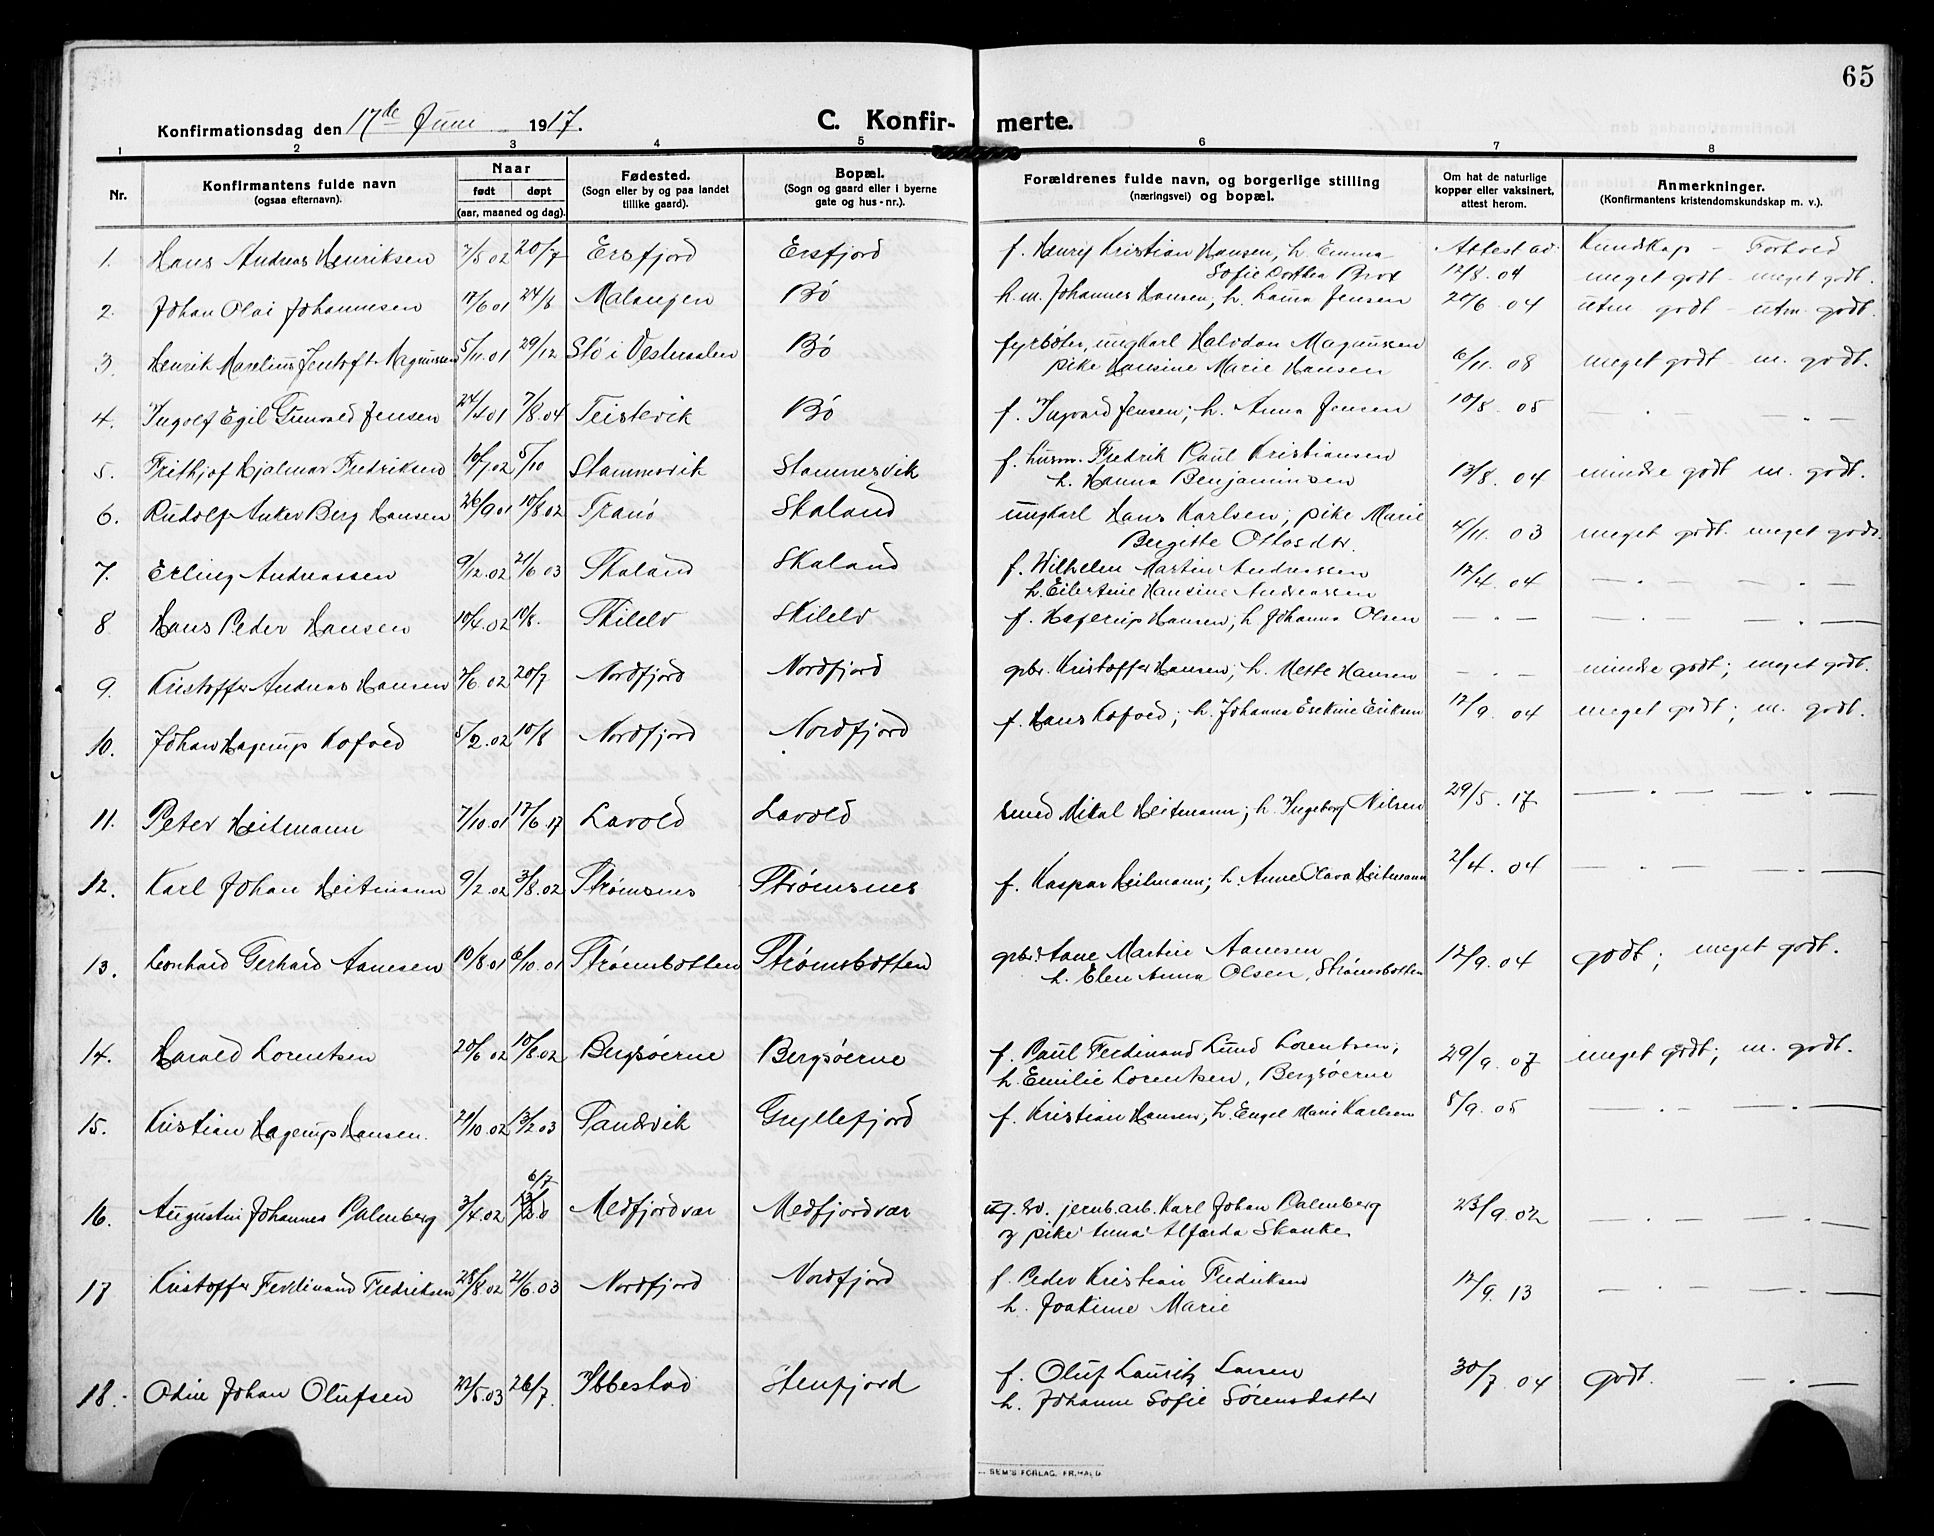 65
Konfirmationsdag den 17de Juni 1917.
C. Konfir-merte.
1 2 3 4 5 6 7 8
Nr. Konfirmantens fulde navn (ogsaa efternavn). Naar født døpt (aar, maaned og dag). Fødested. (Sogn eller by og paa landet tillike gaard). Bopæl. (Sogn og gaard eller i byerne gate og hus-nr.). Forældrenes fulde navn, og borgerlige stilling (næringsvei) og bopæl. Om hat de naturlige kopper eller vaksinert, attest herom. Anmerkninger. (Konfirmantens kristendomskundskap m. v.).
1. Hans Andreas Henriksen 7/5 02 20/7 Ersfjord Ersfjord f. Henrif Kristian Hansen, h. Emma Attest ad. Kundskap - Forhold
Sofie Dorthea Brox 12/8. 04 meget godt - meget godt.
2. Johan Olai Johannesen 12/6 01 24/8 Malangen Bø h.m. Johannes Hansen, h. Laura Jensen 20/6. 04 utm godt - utm. godt.
3. Henrik Marelius Jentoft Magnussen 5/11.01 29/12 Stø i Vesteraalen Bø fyrbøter, ungkarl Halvdan Magnussen
pike Hansine Marie Hansen 6/11. 08 meget godt - m. godt.
4. Ingolf Egil Gunvald Jensen 24/4 01 7/8.04 Teistevik Bø f. Ingvard Jensen; h. Anna Jensen 10/8. 05 — . — — . —
5. Frithjof Hjalmar Fredriksen 10/7.02 5/10 Stammesvik Stamnesvik f. husm. Fredrik Paul Kristiansen
h. Hanna Benjaminsen 13/8. 04 mindre godt m. godt.
6. Rudolf Anker Berg Hansen 26/9 01 10/8.02 Tranø Skaland ungkarl Hans Karlsen; pike Marie
Bergitte Ottosdtr. 4/11. 03 meget godt. meget godt.
7. Erling Andreassen 9/12.02 21/6 03 Skaland Skaland f. Wilhelm Martin Andreassen
h. Eilertine Hansine Andreassen 12/4. 04 — . — — . —
8 Hans Peder Hansen 10/4.02 10/8. Skilelv Skilelv f. Hagerup Hansen; h Johanna Olsen — . — — . — — . —
9. Kristoffer Andreas Hansen 7/6. 02 20/7 Nordfjord Nordfjord gbr. Kristoffer Hansen; h. Mette Hansen — . — mindre godt; meget godt.
10. Johan Hagerup Kofoed 5/2.02 10/8 Nordfjord Nordfjord f. Hans Kofoed; h. Johanna Eriksen 12/9. 04 meget godt; m. godt.
11. Peter Heitmann 7/10.01 17/6.17 Lavold Lavold smed Mikal Heitmann; h. Ingeborg Nilsen 29/5. 17 — . — — . —
12. Karl Johan Heitmann 9/2.02 3/8.02 Strømsnes Strømsnes f. Kaspar Heitmann; h. Anne Olava Heitmann 2/4. 04 — . — — . —
13. Leonhard Gerhard Aamesen 10/8.01 6/10.01 Strømsbotten Strømsbotten gbr. Aane Martin Aanesen
h. Elen Anna Olsen, Strømsbotten 12/9. 04 godt; meget godt.
14. Harald Lorentsen 20/6 02 10/8.02 Bergsøerne Bergsøerne f. Paul Ferdinand Lund Lorentsen;
h. Emilie Lorentsen, Bergsøerne 29/9. 07 meget godt; m. godt.
15. Kristian Hagerup Hansen. 21/10.02 13/2.03 Sandsvik Gryllefjord f. Kristian Hansen, h. Engel Marie Karlsen 5/9. 05 — . — — . —
6/7
16. Augustin Johannes Palmberg 3/4.02 Medfjordvær Medfjordvær ug. sv. jernb.arb. Karl Johan Palmberg
og pike Anna Alfarda Skanke. 23/9.02 — . — — . —
17 Kristoffer Ferdinand Fredriksen 28/8.02 21/6.03 Nordfjord Nordfjord f. Peder Kristian Fredriksen
h. Joakime Marie 12/9. 13 — . — — . —
18. Odin Johan Olufsen 22/5.03 26/7. Ibbestad Stenfjord f. Oluf Lauritz Larsen
h. Johanne Sofie Sørensdatter 30/7. 04 godt. — . —
SEM'S FORLAG. FR.HALD